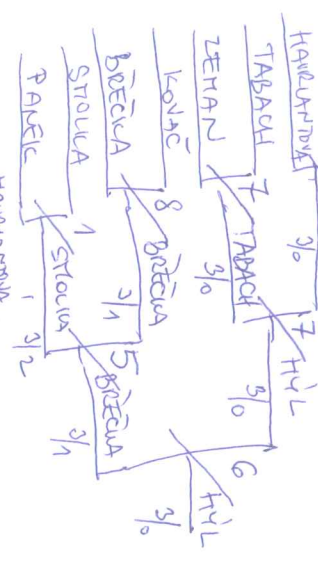 HAVRLANTOVÁ
TABACH
ZEMAN
KOVAČ
BŘEČKA
SMOLKA
PANEK
3/0
7
TABACH
3/0
8
BŘEČKA
3/1
1
SMOLKA
3/2
7
HÝL
3/0
5
BŘEČKA
3/1
6
HÝL
3/0